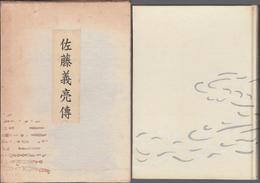 佐藤義亮傳